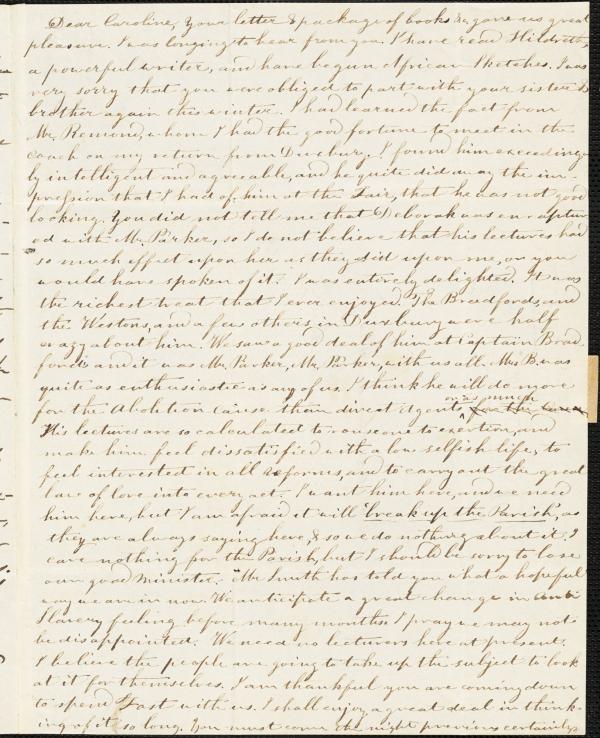 Dear Caroline, Your letter & package of books &c, gave us great
pleasure. I was longing to hear from you. I have read Hildreth,
a powerful writer, and have begun African Sketches. I was
very sorry that you were obliged to part with your sister &
brother again this winter. I had learned the fact from
Mr. Remond, whom I had the good fortune to meet in the
coach on my return from Duxbury. I found him exceeding-
ly intelligent and agreeable, and he quite did away the im
pression that I had of him at the Fair, that he was not good
looking. You did not tell me that Deborah was enraptur
ed with Mr. Parker, so I do not believe that his lectures had
so much effect upon her as they did upon me, or you
would have spoken of it. I was entirely delighted. It was
the richest treat that I ever enjoyed. The Bradfords, and
the Westons, and a few others, in Duxbury were half
crazy about him. We saw a good deal of him at Captain Brad
ford's and it was Mr. Parker, Mr. Parker, with us all. Mrs B. was
quite as enthusiastic as any of us. I think he will do more
or as much
for the Abolition cause than direct Agents, for the cause
His lectures are so calculated to rouse one to exertion, and
make him feel dissatisfied with a low selfish life, to
feel interested in all reforms, and to carry out the great
law of love into every act. I want him here, and we need
him here, but I am afraid it will "break up the Parish", as
they are always saying here, & so we do nothing about it. I
care nothing for the Parish, but I should be sorry to lose
our good Minister. Mr. Smith has told you what a hopeful
way we are in now. We anticipate a great change in Anti
Slavery feeling before many months. I pray we may not
be disappointed. We need no lecturers here at present.
I believe the people are going to take up the subject to look
at it for themselves. I am thankful you are coming down
to spend Fast with us. I shall enjoy a great deal in think-
ing of it so long. You must come the night previous certainly